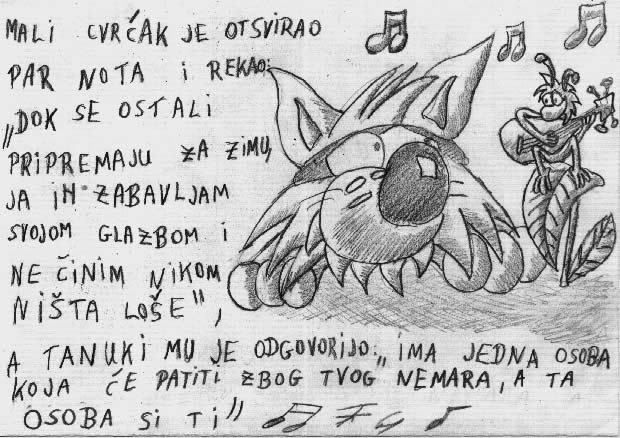 MALI CVRČAK JE OTSVIRAO
PAR NOTA I REKAO:
„DOK SE OSTALI
PRIPREMAJU ZA ZIMU,
JA IH ZABAVLJAM
SVOJOM GLAZBOM I
NE ČINIM NIKOM
NIŠTA LOŠE",
A TANUKI MU JE ODGOVORIJO: „IMA JEDNA OSOBA
KOJA ĆE PATITI ZBOG TVOG NEMARA, A TA
OSOBA SI TI"